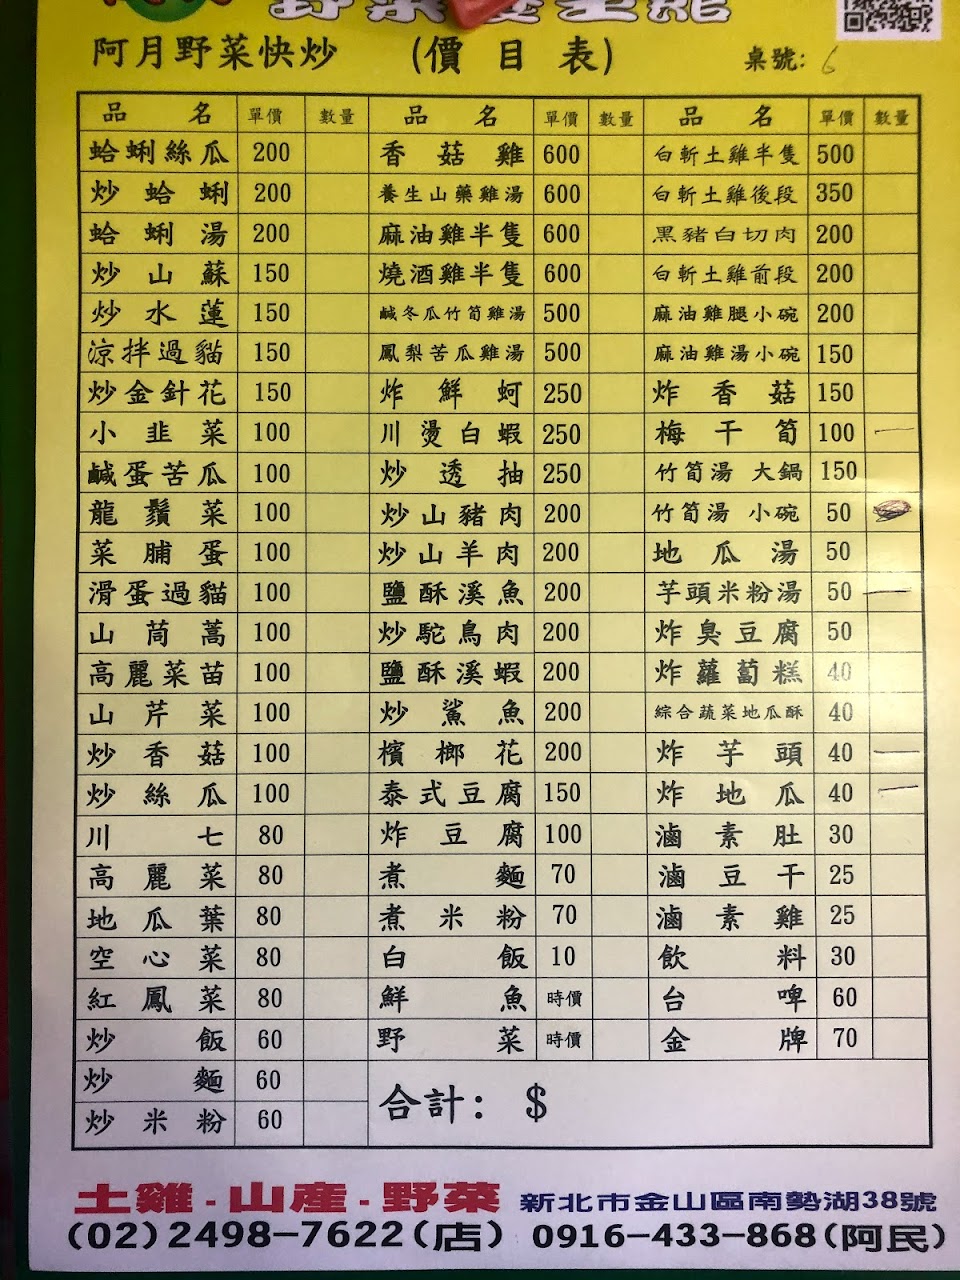 阿月野菜快炒 (價目表) 桌號: 6
品名 單價 數量 品名 單價 數量 品名 單價 數量
蛤蜊絲瓜 200 香菇雞 600 白斬土雞半隻 500
炒蛤蜊 200 養生山藥雞湯 600 白斬土雞後段 350
蛤蜊湯 200 麻油雞半隻 600 黑豬白切肉 200
炒山蘇 150 燒酒雞半隻 600 白斬土雞前段 200
炒水蓮 150 鹹冬瓜竹筍雞湯 500 麻油雞腿小碗 200
涼拌過貓 150 鳳梨苦瓜雞湯 500 麻油雞湯小碗 150
炒金針花 150 炸鮮蚵 250 炸香菇 150
小韭菜 100 川燙白蝦 250 梅干筍 100 一
鹹蛋苦瓜 100 炒透抽 250 竹筍湯 大鍋 150
龍鬚菜 100 炒山豬肉 200 竹筍湯 小碗 50
菜脯蛋 100 炒山羊肉 200 地瓜湯 50
滑蛋過貓 100 鹽酥溪魚 200 芋頭米粉湯 50 一
山茼蒿 100 炒駝鳥肉 200 炸臭豆腐 50
高麗菜苗 100 鹽酥溪蝦 200 炸蘿蔔糕 40
山芹菜 100 炒鯊魚 200 綜合蔬菜地瓜酥 40
炒香菇 100 檳榔花 200 炸芋頭 40 一
炒絲瓜 100 泰式豆腐 150 炸地瓜 40 一
川七 80 炸豆腐 100 滷素肚 30
高麗菜 80 煮麵 70 滷豆干 25
地瓜葉 80 煮米粉 70 滷素雞 25
空心菜 80 白飯 10 飲料 30
紅鳳菜 80 鮮魚 時價 台啤 60
炒飯 60 野菜 時價 金牌 70
炒麵 60
炒米粉 60
合計: $
土雞-山產-野菜 新北市金山區南勢湖38號
(02)2498-7622(店) 0916-433-868(阿民)